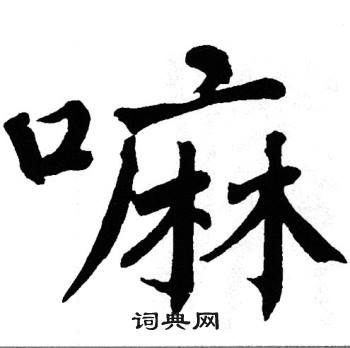 嘛
词典网